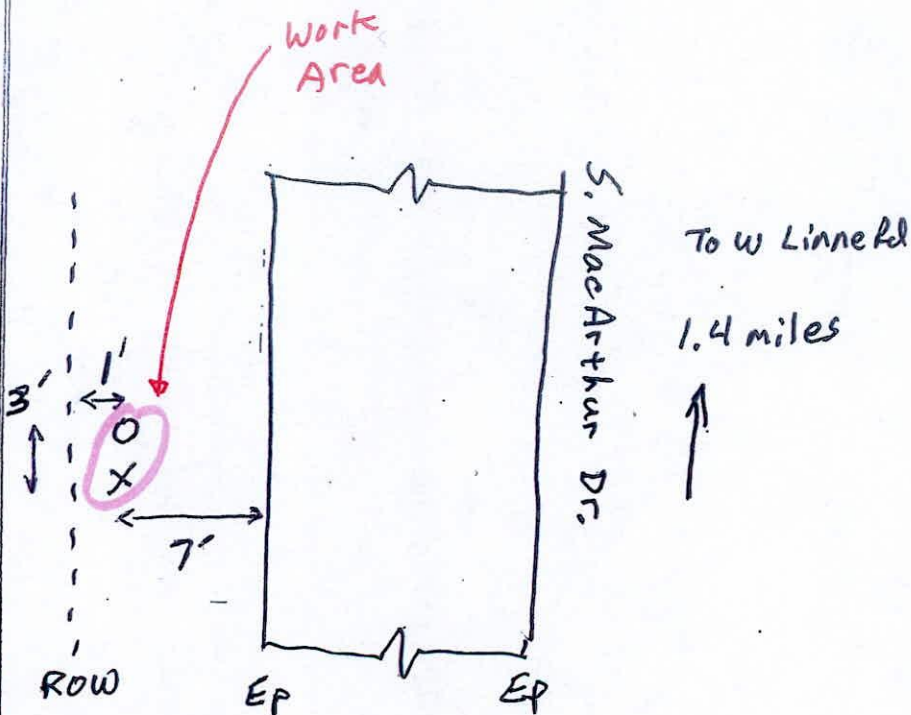 Work
Area
S. MacArthur Dr.
To W Linne Rd
1.4 miles
1'
3'
O
X
7'
ROW
EP
EP